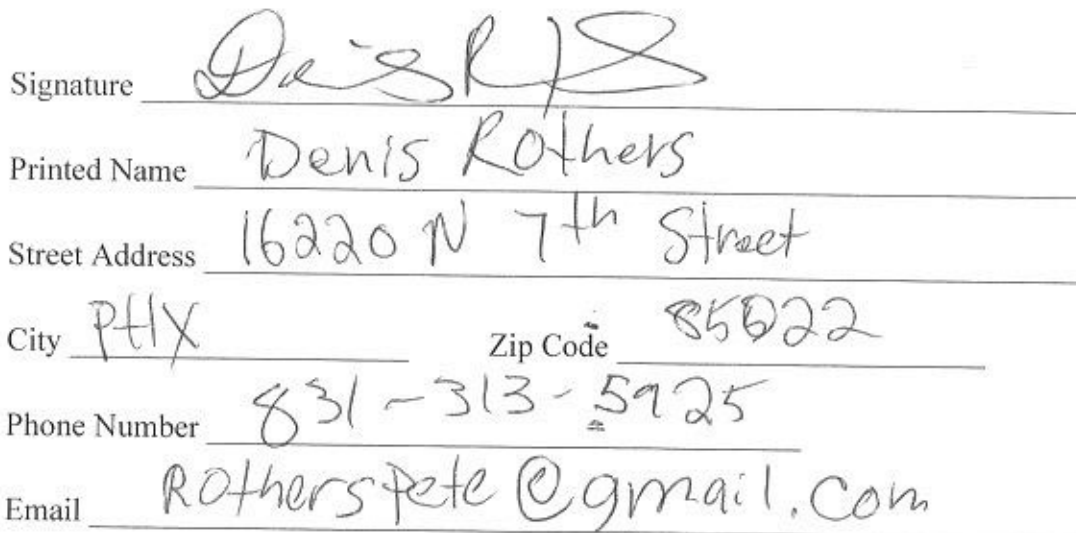 Signature
Printed Name Denis Rothers
Street Address 16220 N 7th Street
City PHX Zip Code 85022
Phone Number 831-313-5925
Email Rotherspete@gmail.com